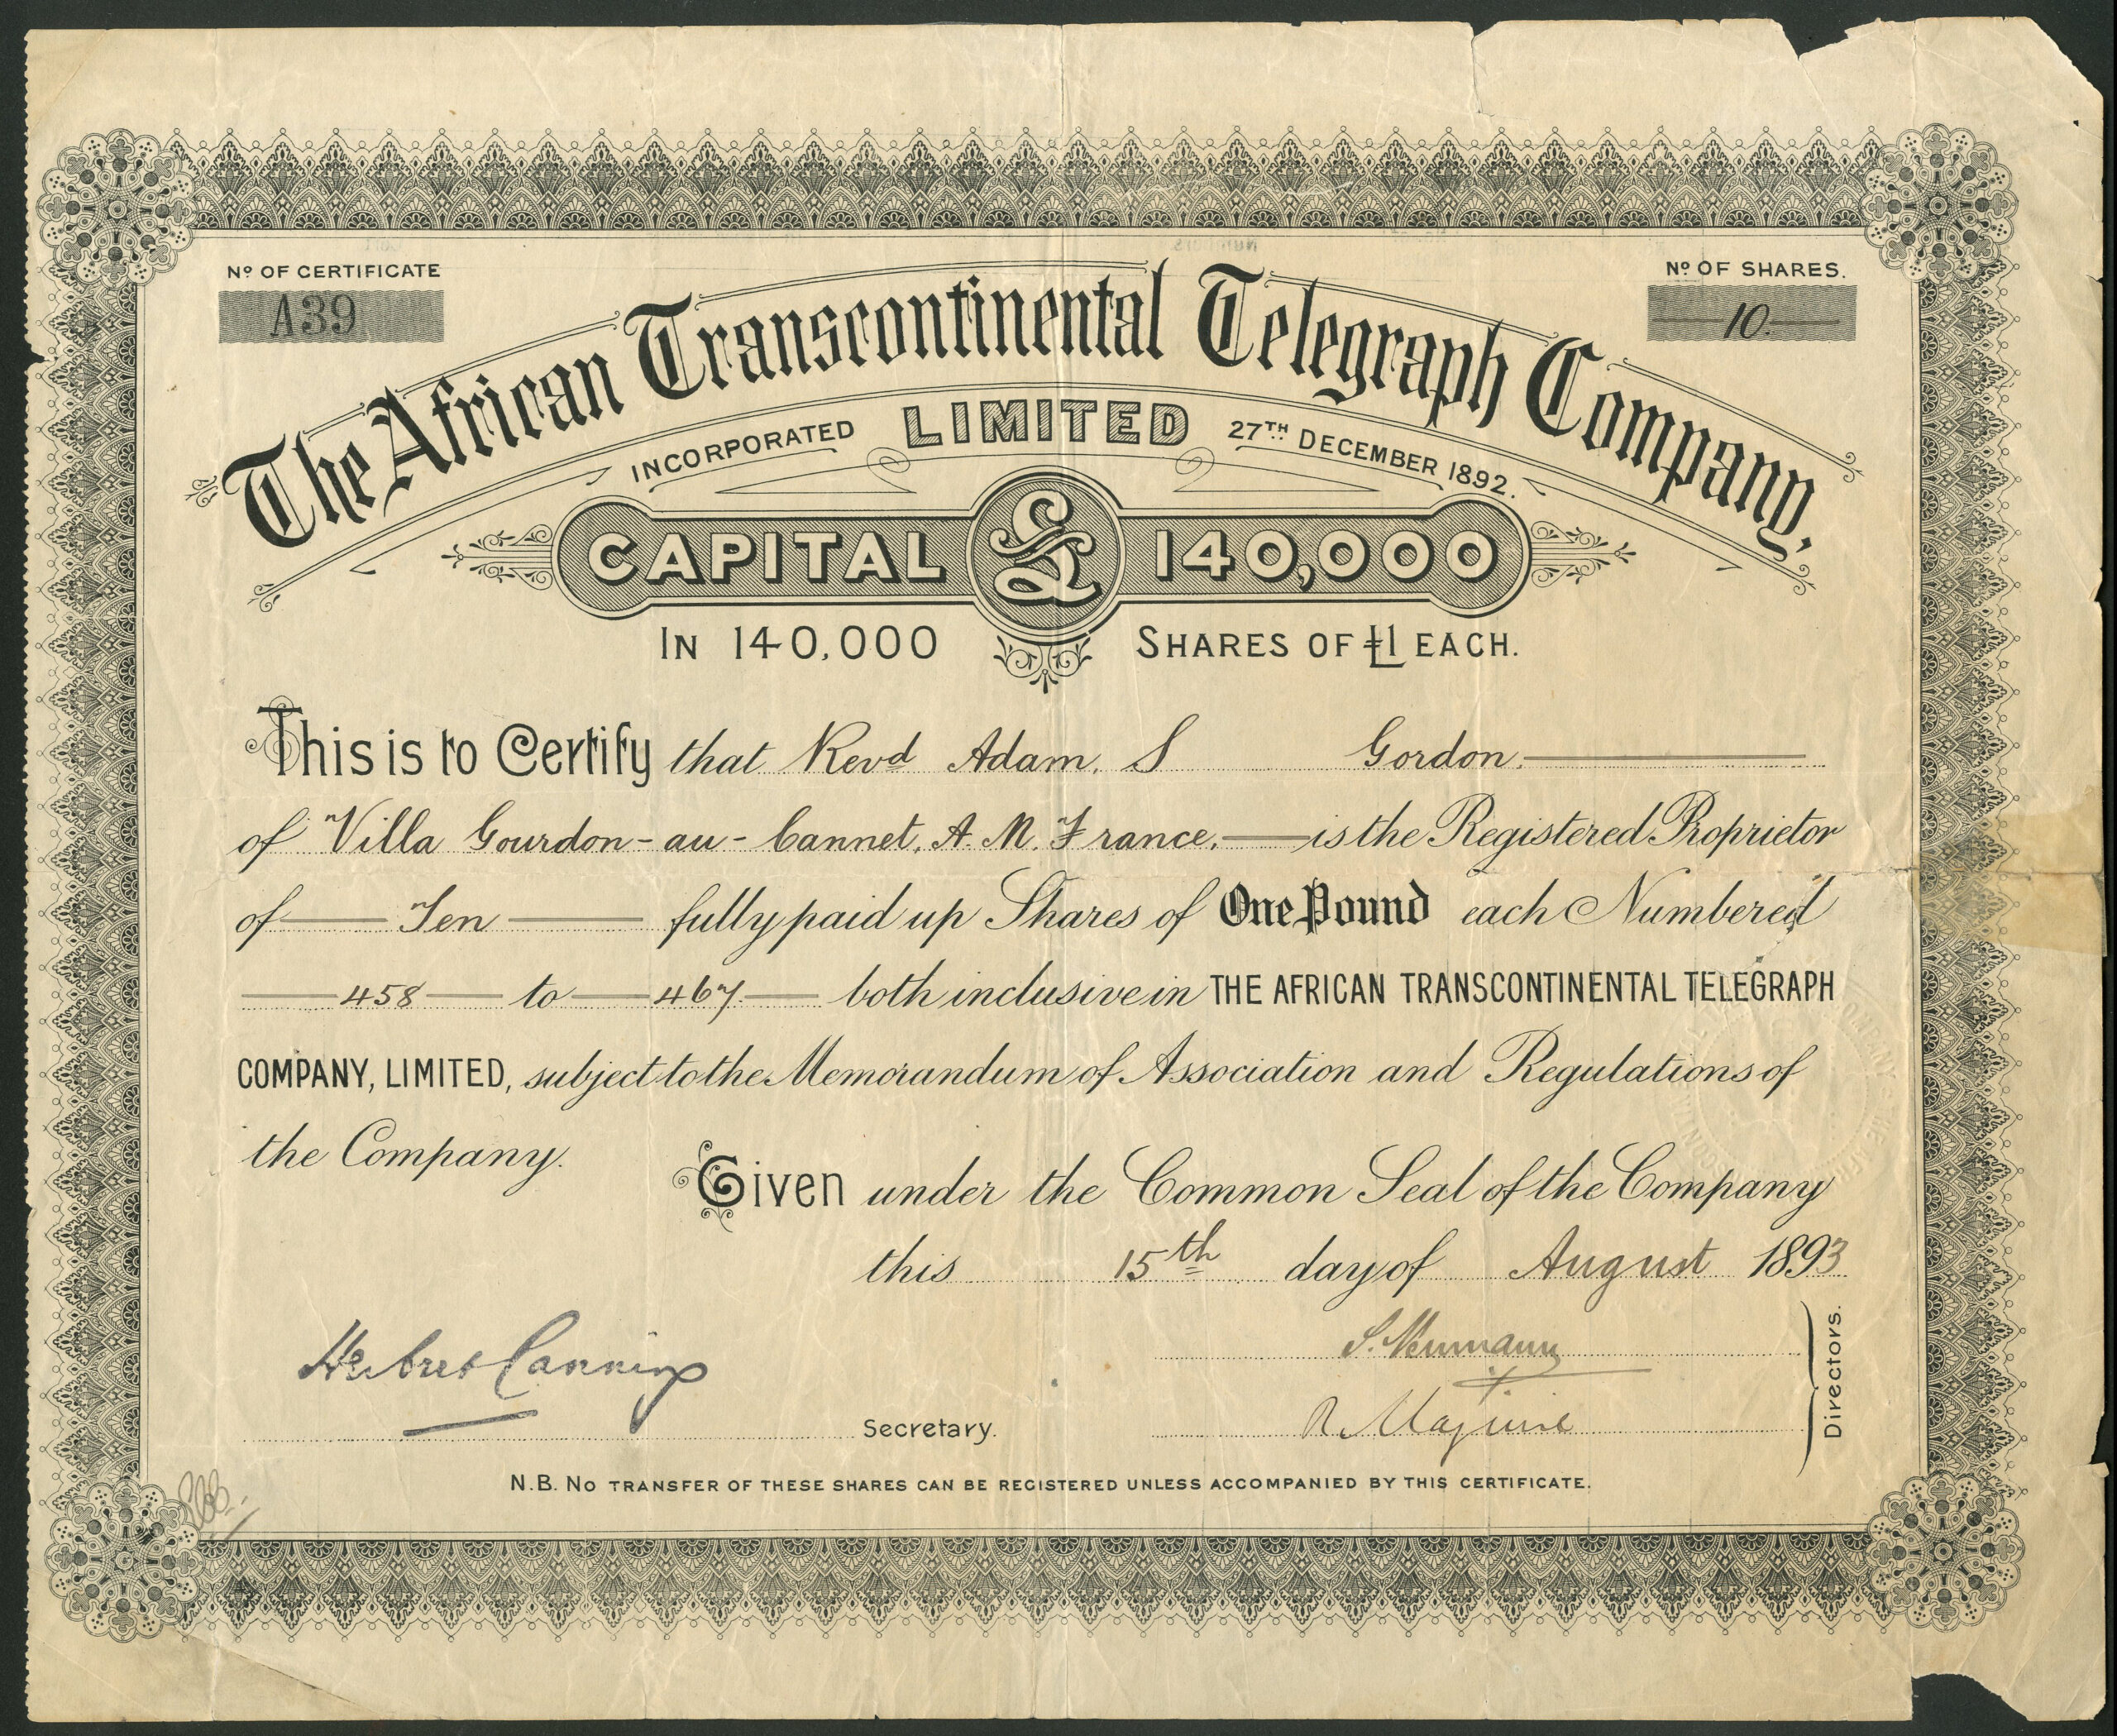 Nº OF CERTIFICATE
A39
Nº OF SHARES.
10.
The African Transcontinental Telegraph Company,
INCORPORATED LIMITED 27TH DECEMBER 1892.
CAPITAL £ 140,000
IN 140,000 SHARES OF £1 EACH.
This is to Certify that Revd Adam. S Gordon.
of Villa Gourdon-au-Cannet. A. M. France. is the Registered Proprietor
of Ten fully paid up Shares of One Pound each Numbered
458 to 467 both inclusive in THE AFRICAN TRANSCONTINENTAL TELEGRAPH
COMPANY, LIMITED, subject to the Memorandum of Association and Regulations of
the Company.
Given under the Common Seal of the Company
this 15th day of August 1893
Herbert Canning
Secretary.
S. Neumann
R. Maguire
Directors.
N.B. NO TRANSFER OF THESE SHARES CAN BE REGISTERED UNLESS ACCOMPANIED BY THIS CERTIFICATE.